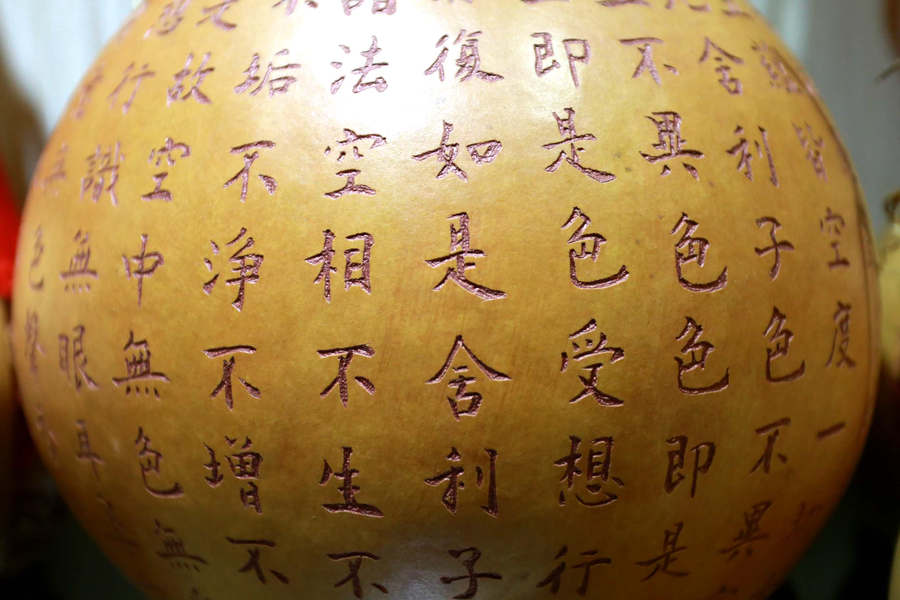 皆空度一
舍利子色不異
不異色色即是
即是色受想行
復如是舍利子
法空相不生不
垢不淨不增不
故空中無色無
行識無眼耳
色聲